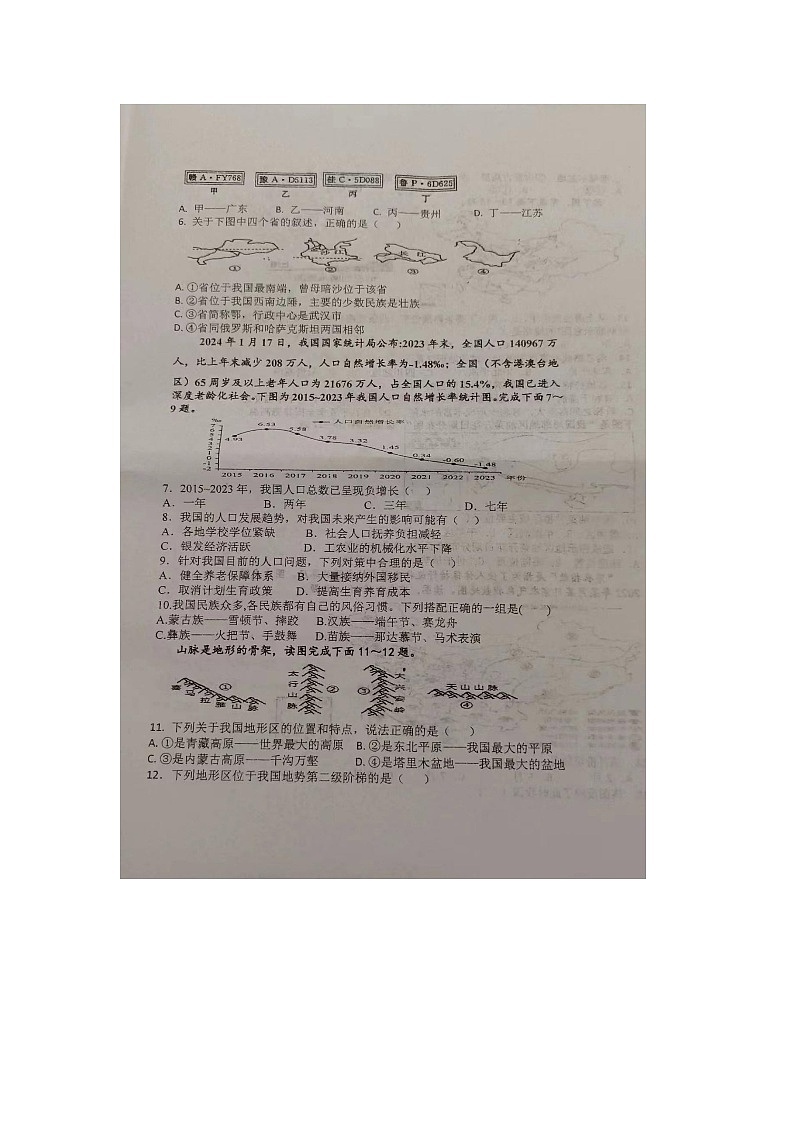 赣A·FY768 豫A·D5113 桂C·5D088 鲁P·6D625
甲 乙 丙 丁
A. 甲——广东 B. 乙——河南 C. 丙——贵州 D. 丁——江苏
6. 关于下图中四个省的叙述，正确的是（ ）
长 江
① ② ③ ④
A. ①省位于我国最南端，曾母暗沙位于该省
B. ②省位于我国西南边陲，主要的少数民族是壮族
C. ③省简称鄂，行政中心是武汉市
D. ④省同俄罗斯和哈萨克斯坦两国相邻
2024年1月17日，我国国家统计局公布:2023年末，全国人口140967万
人，比上年末减少208万人，人口自然增长率为-1.48‰；全国（不含港澳台地
区）65周岁及以上老年人口为21676万人，占全国人口的15.4%，我国已进入
深度老龄化社会。下图为2015~2023年我国人口自然增长率统计图。完成下面7～
9题。
‰ 人口自然增长率
7 6 5 4 3 2 1 0 -1 -2
4.93 6.53 5.58 3.78 3.32 1.45 0.34 -0.60 -1.48
2015 2016 2017 2018 2019 2020 2021 2022 2023 年份
7. 2015~2023年，我国人口总数已呈现负增长（ ）
A. 一年 B. 两年 C. 三年 D. 七年
8. 我国的人口发展趋势，对我国未来产生的影响可能有（ ）
A. 各地学校学位紧缺 B. 社会人口抚养负担减轻
C. 银发经济活跃 D. 工农业的机械化水平下降
9. 针对我国目前的人口问题，下列对策中合理的是（ ）
A. 健全养老保障体系 B. 大量接纳外国移民
C. 取消计划生育政策 D. 提高生育养育成本
10.我国民族众多,各民族都有自己的风俗习惯。下列搭配正确的一组是( )
A.蒙古族——雪顿节、摔跤 B.汉族——端午节、赛龙舟
C.彝族——火把节、手鼓舞 D.苗族——那达慕节、马术表演
山脉是地形的骨架，读图完成下面11～12题。
喜马拉雅山脉 ① 太行山脉 ② ③ 大兴安岭 天山山脉 ④
11. 下列关于我国地形区的位置和特点，说法正确的是（ ）
A. ①是青藏高原——世界最大的高原 B. ②是东北平原——我国最大的平原
C. ③是内蒙古高原——千沟万壑 D. ④是塔里木盆地——我国最大的盆地
12. 下列地形区位于我国地势第二级阶梯的是（ ）